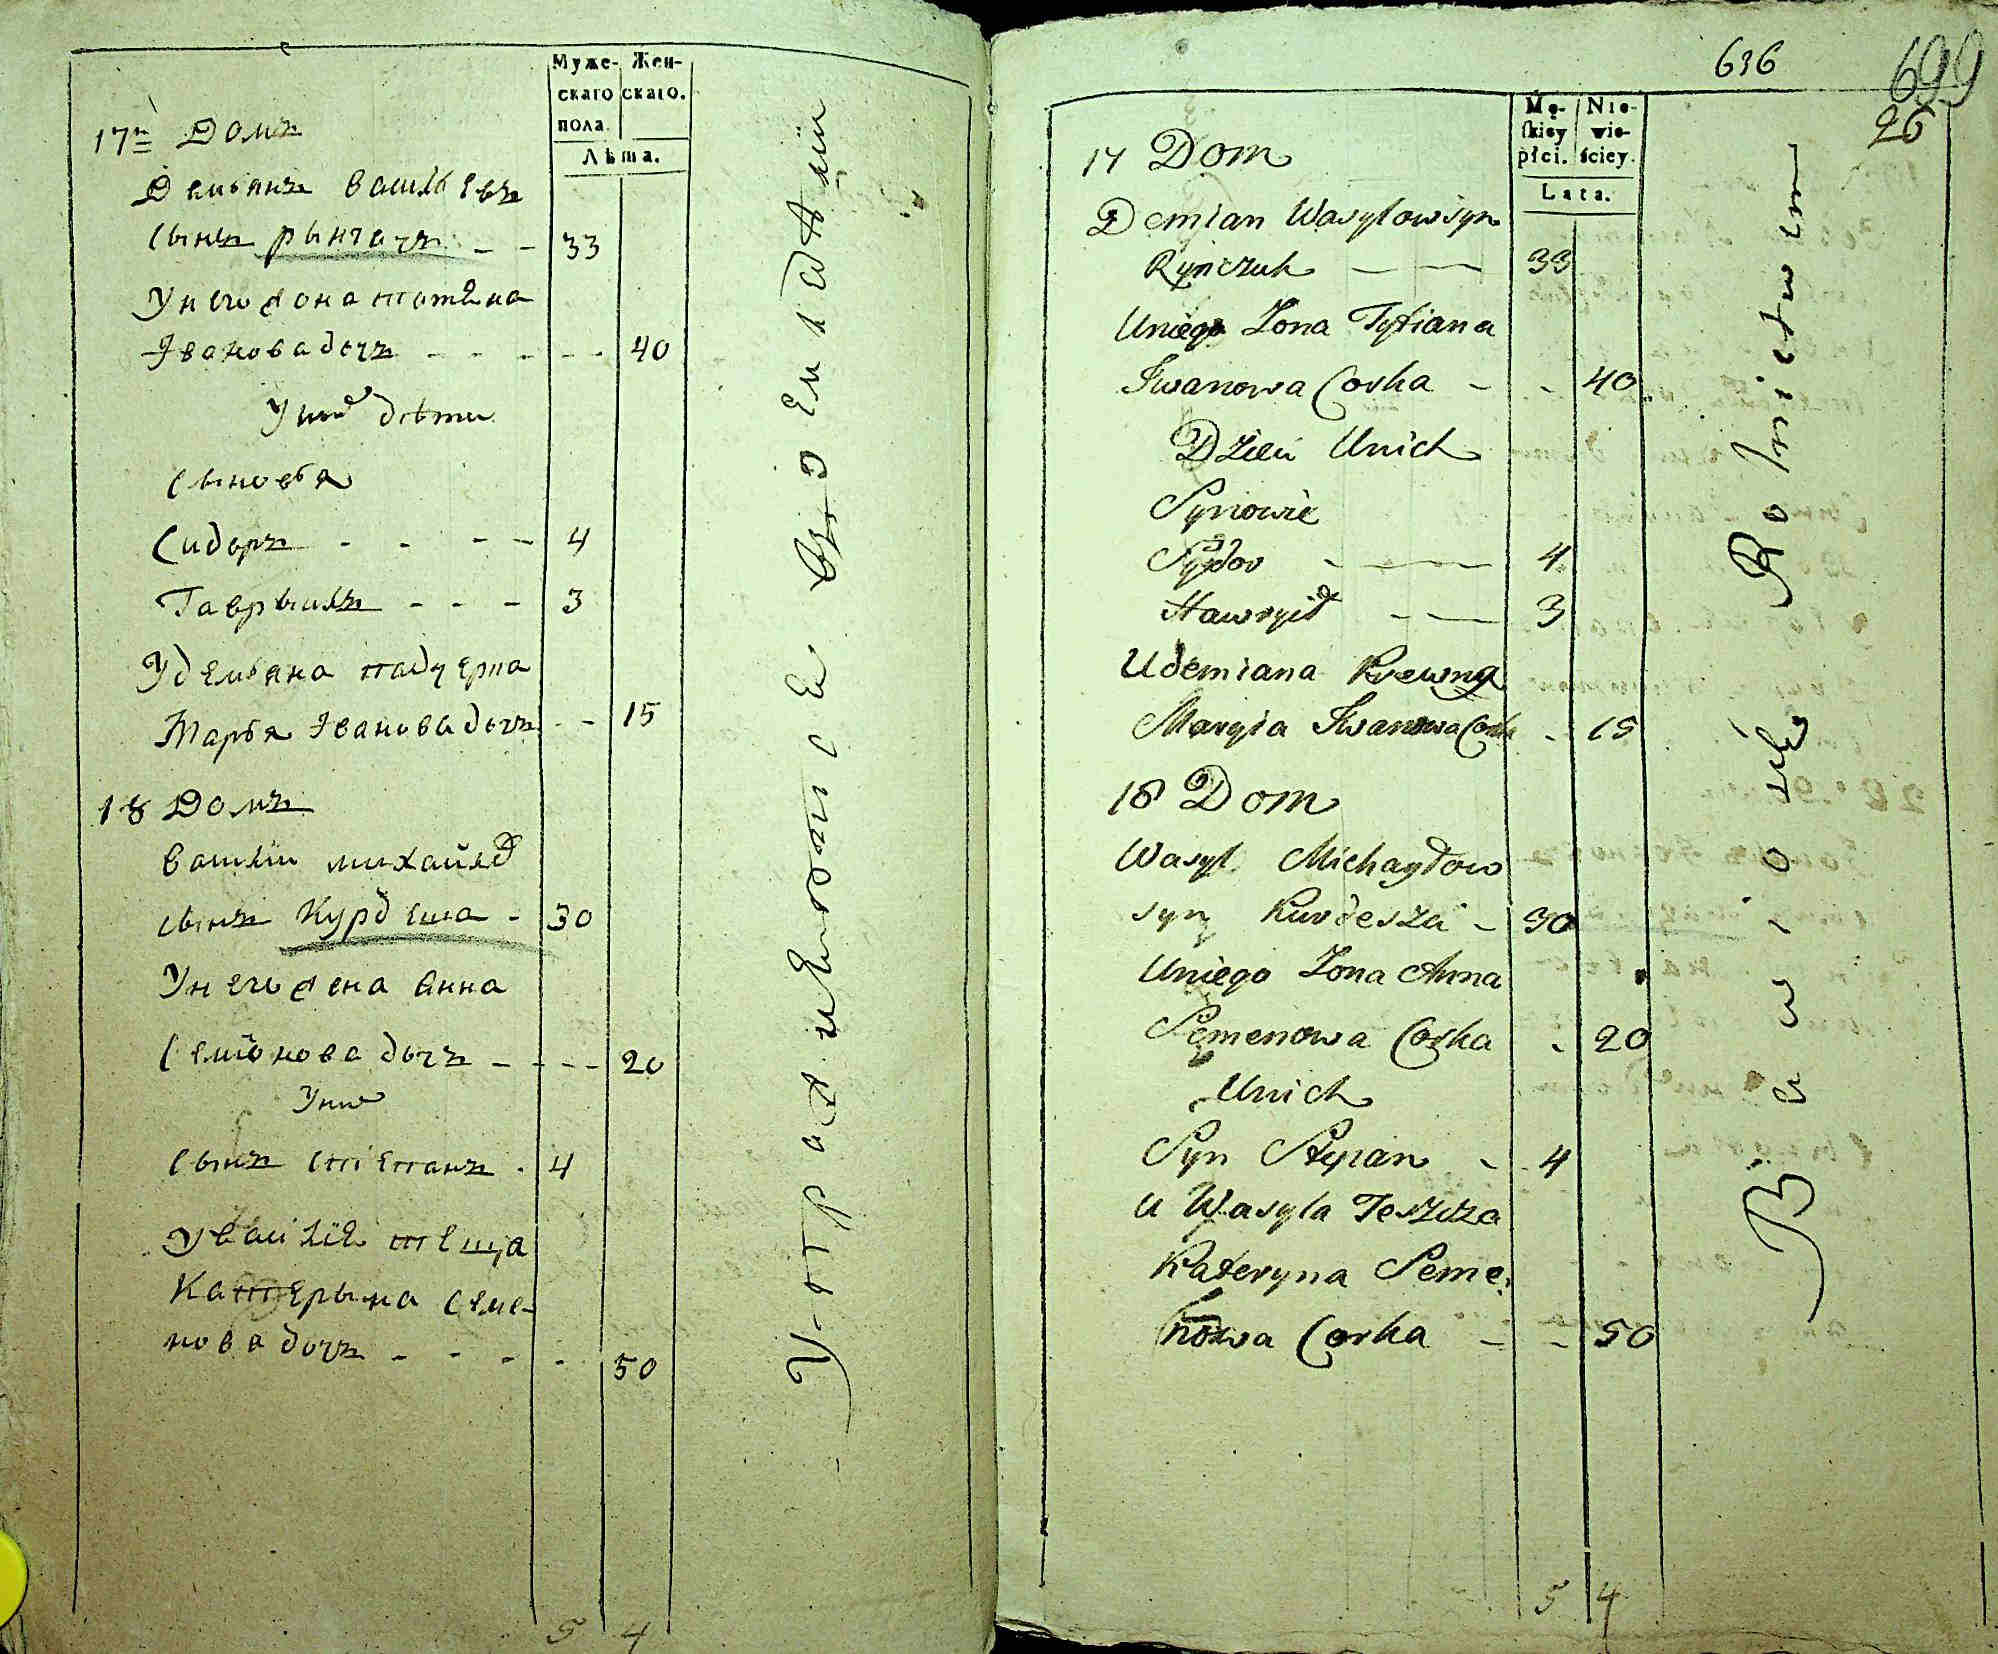 Муже-
скаго
пола.
Жен-
скаго.
Лѣта.
17й Домъ
Демьянъ Василь евъ
сынъ рынчачъ - - 33
У него жона татяна
Іванова дочъ - - - - - 40
У них дѣти
Сыновья
Сидоръ - - - - 4
Гаврыилъ - - - 3
У демьяна падчерца
Марья Іванова дочъ - - 15
18 Домъ
Василій михайлов
сынъ Курдеша - 30
У него жена Анна
Семіонова дочъ - - - - 20
У них
Сынъ стіепанъ - 4
У Василія теща
Катерына Семе-
нова дочъ - - - - 50
5 4
636
699
26
Mę-
skiey
płci.
Nie-
wie-
ściey.
Lata.
17 Dom
Demian Wasylow syn
Rynczuk — — 33
U niego Żona Tytiana
Iwanowa Corka - - 40
Dzieci U nich
Synowie
Sydor - — — 4
Hawryił - — 3
U demiana Krewna
Maryia Iwanowa Corka - 15
18 Dom
Wasyl Michayłow
syn Kurdesza - 30
U niego Żona Anna
Semenowa Corka - 20
U nich
Syn Stepan - 4
U Wasyla Teszcza
Kateryna Seme-
nowa Corka - - 50
Bawio się Rolnictwem
5 4